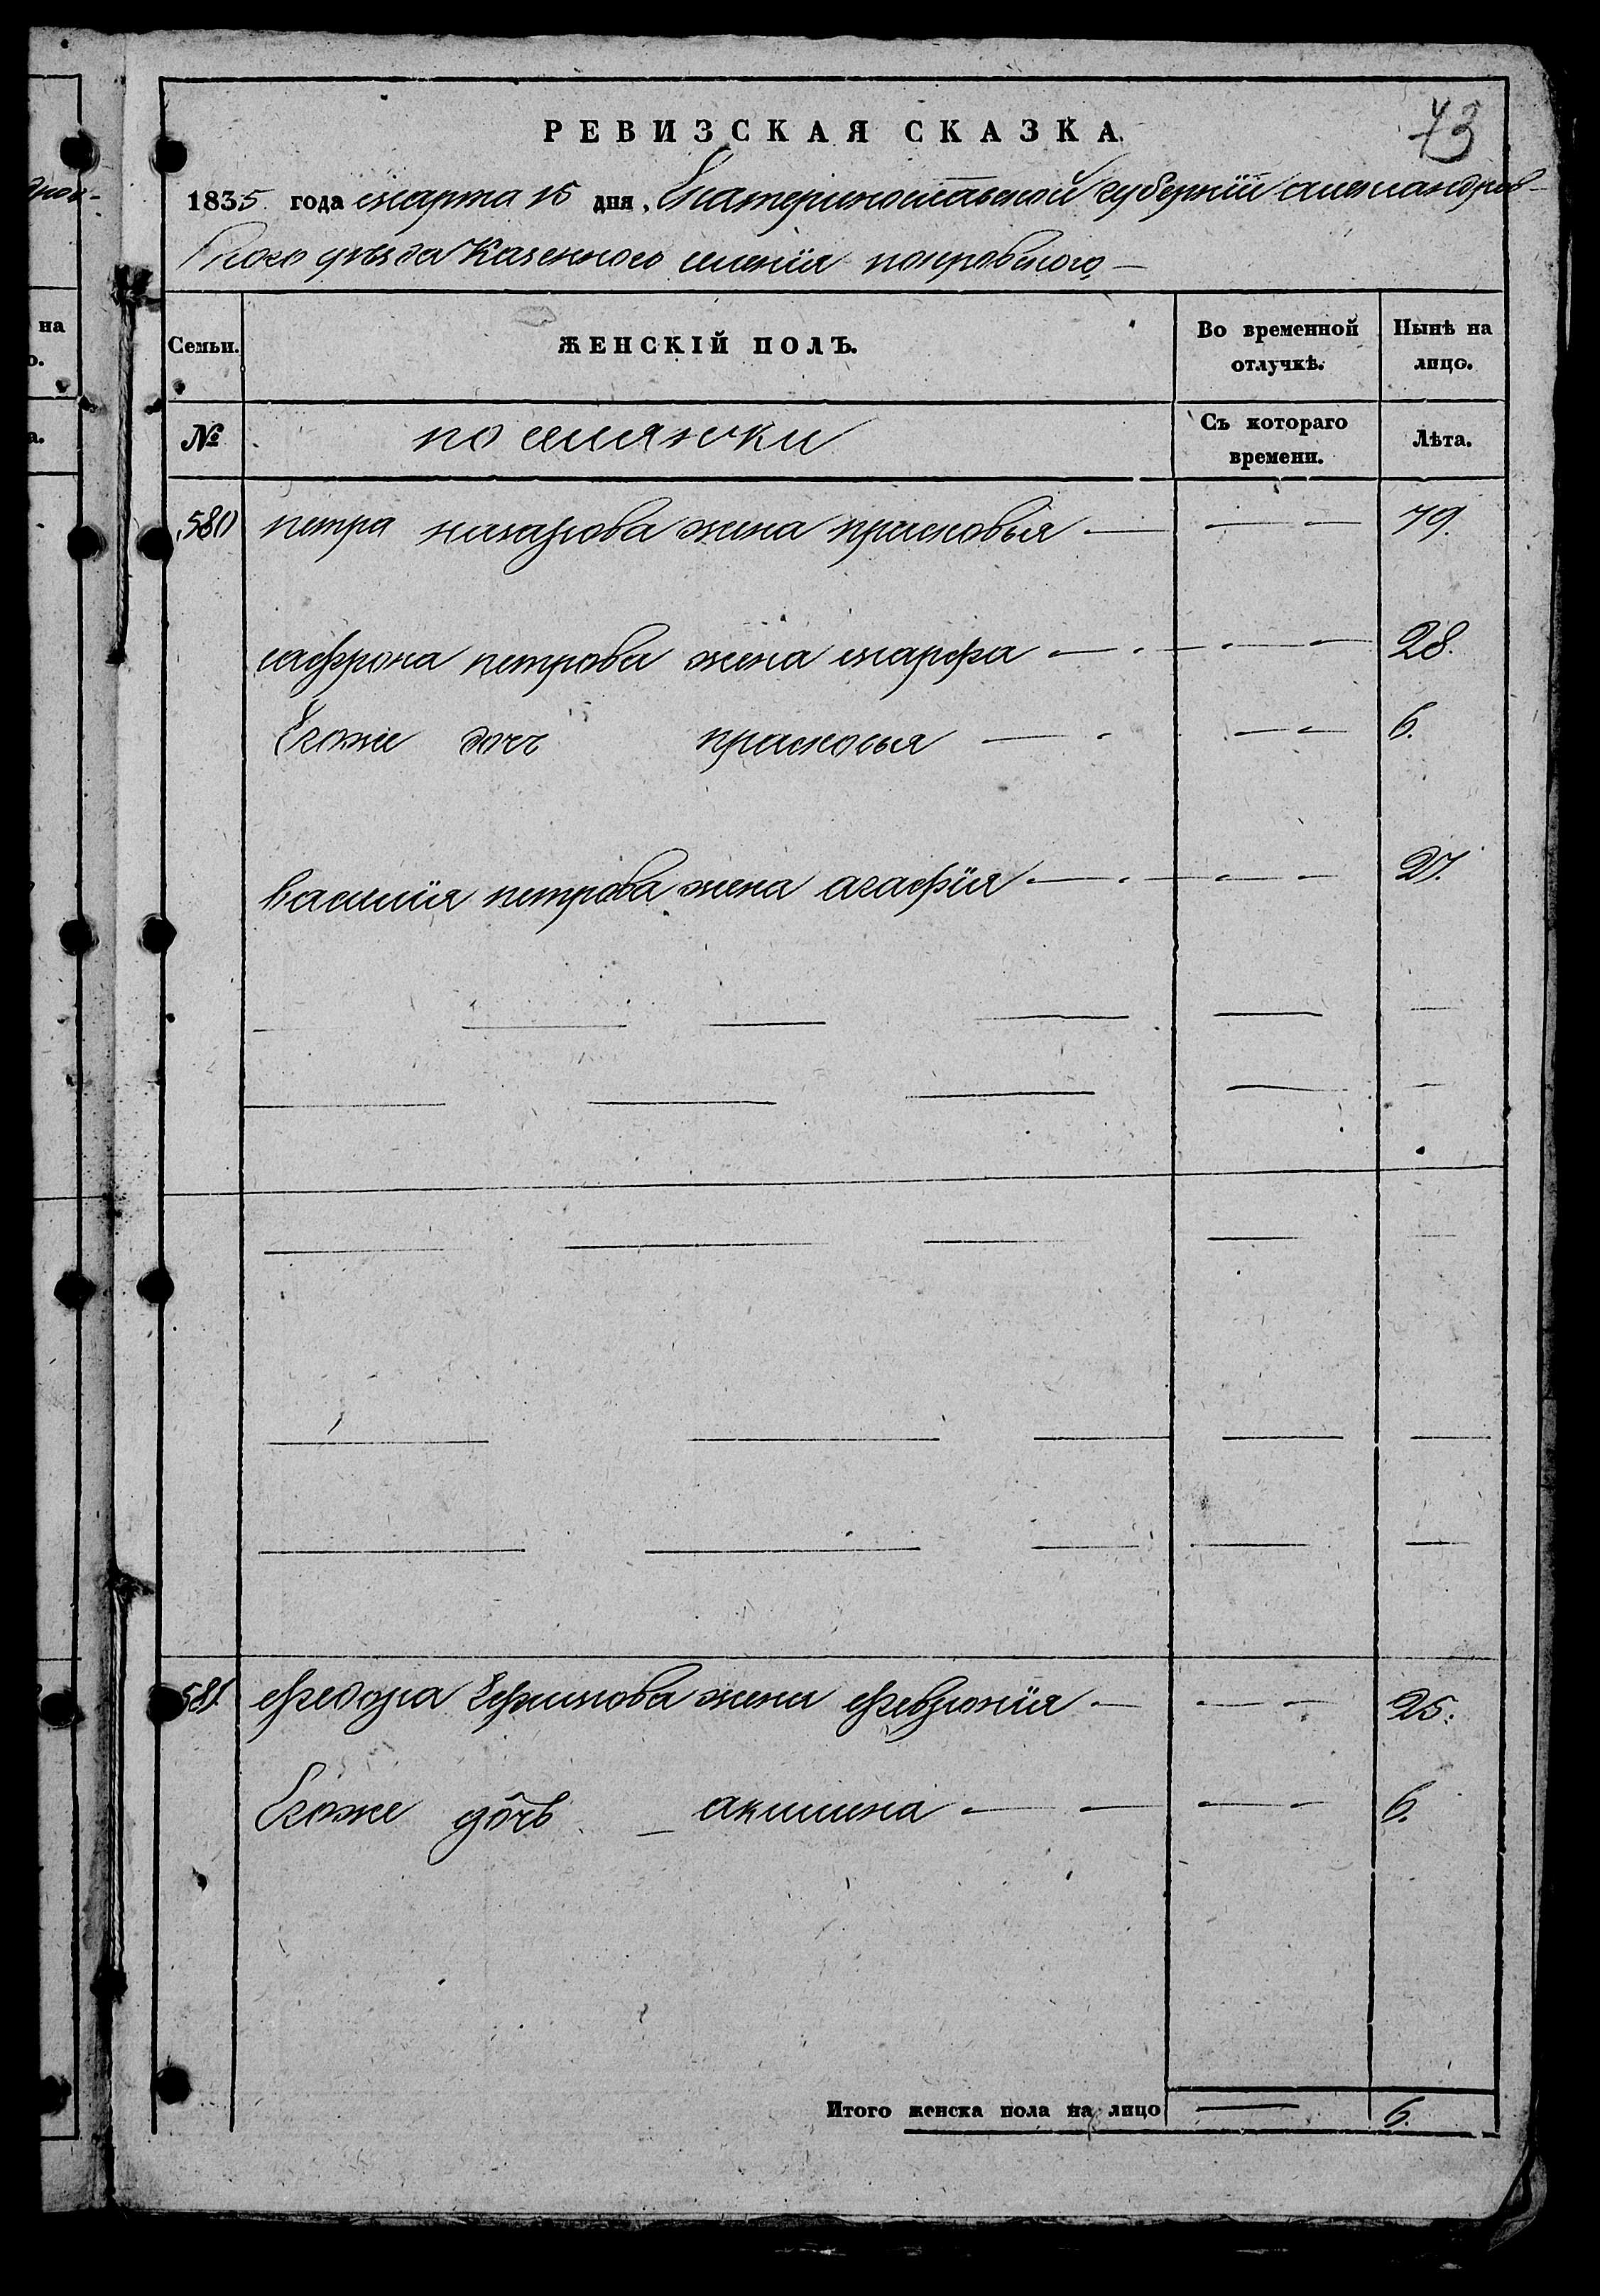 73
РЕВИЗСКАЯ СКАЗКА.
1835 года марта 15 дня, Екатеринославской губернїи александров-
ского уезда Казенного селенїя покровского
Семьи. ЖЕНСКІЙ ПОЛЪ. Во временной отлучкѣ. Нынѣ на лицо.
№ поселянки Съ котораго времени. Лѣта.
580 петра назарова жена прасковья — — — 79.
сафрона петрова жена марфа — — — 28.
Егоже доч прасковья — — — 6.
василия петрова жена агафїя — — — 27.
581 федора Ефимова жена феврония — — — 25.
Егоже дочь акилина — — — — 6.
Итого женска пола на лицо — 6.
на
о.
а.